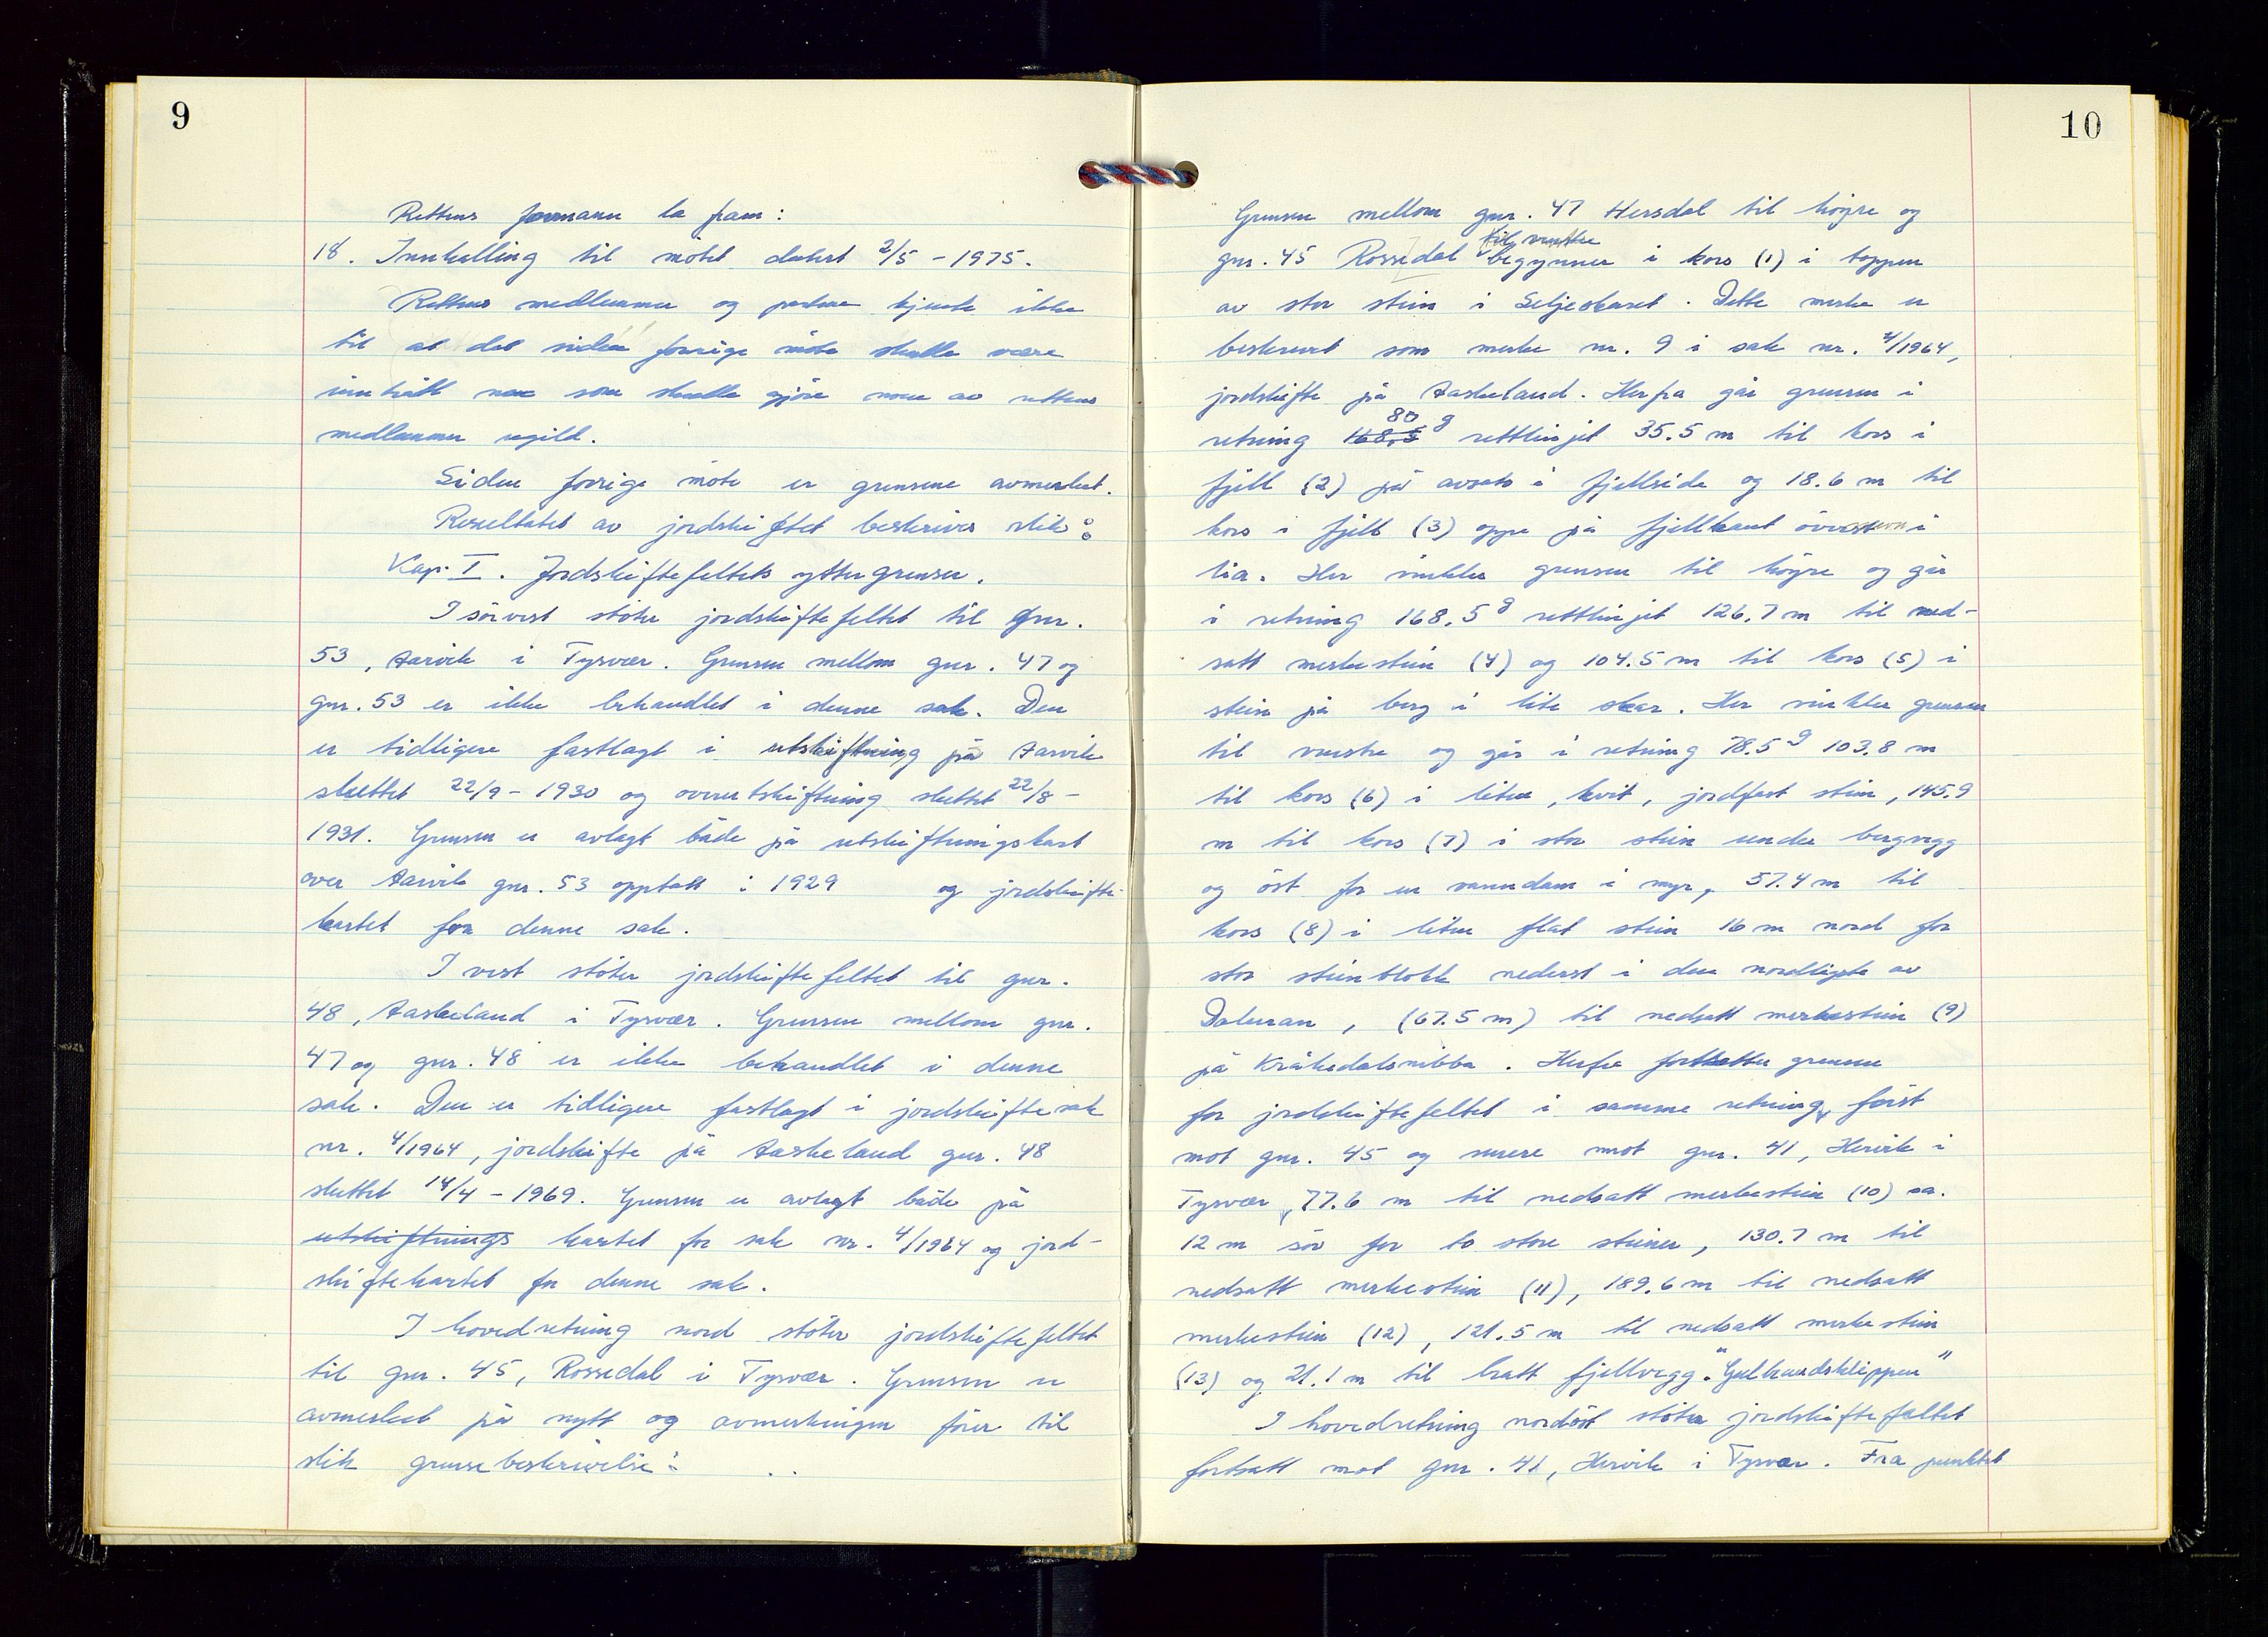 9
Rettens formann la fram:
18. Innkalling til møtet datert 2/5 - 1975.
Rettens medlemmer og partene kjente ikke
til at det siden forrige møte skulle være
inntrått noe som skulle gjöre noen av rettens
medlemmer ugild.
Siden forrige möte er grensene avmerket.
Resultatet av jordskiftet beskrives slik:
Kap. I. Jordskiftefeltets yttergrenser.
I sörvest stöter jordskiftefeltet til gnr.
53, Aarvik i Tysvær. Grensen mellom gnr. 47 og
gnr. 53 er ikke behandlet i denne sak. Den
er tidligere fastlagt i utskiftning på Aarvik
sluttet 22/9 - 1930 og overutskiftning sluttet 22/8 -
1931. Grensen er avlagt både på utskiftningskart
over Aarvik gnr. 53 opptatt i 1929 og jordskifte-
kartet for denne sak.
I vest stöter jordskiftefeltet til gnr.
48, Aaskeland i Tysvær. Grensen mellom gnr.
47 og gnr. 48 er ikke behandlet i denne
sak. Den er tidligere fastlagt i jordskiftesak
nr. 4/1964, jordskifte på Aaskeland gnr. 48
sluttet 14/4 - 1969. Grensen er avlagt både på
utskiftnings kartet for sak nr. 4/1964 og jord-
skiftekartet for denne sak.
I hovedretning nord stöter jordskiftefeltet
til gnr. 45, Rossedal i Tysvær. Grensen er
avmerket på nytt og avmerkingen förer til
slik grensebeskrivelse:
10
Grensen mellom gnr. 47 Hersdal til högre og
til venstre
gnr. 45 Rossedal begynner i kors (1) i toppen
av stor stein i Seljeskaret. Dette merke er
beskrevet som merke nr. 9 i sak nr. 4/1964,
jordskifte på Aaskeland. Herfra går grensen i
80
retning 168,5 g rettlinjet 35.5 m til kors i
fjell (2) på avsats i fjellside og 18.6 m til
kors i fjell (3) oppe på fjellkant överst i
lia. Her vinkler grensen til högre og går
i retning 168.5 g rettlinjet 126.7 m til ned-
satt merkestein (4) og 104.5 m til kors (5) i
stein på berg i lite skar. Her vinkler grensen
til venstre og går i retning 78.5 g 103.8 m
til kors (6) i liten, kvit, jordfast stein, 145.9
m til kors (7) i stor stein under bergvegg
og öst for en vanndam i myr, 57.4 m til
kors (8) i liten flat stein 16 m nord for
stor steinblokk nederst i den nordligste av
Daluran, (67.5 m) til nedsatt merkestein (9)
på Kråkedalsnibba. Herfra fortsetter grensen
for jordskiftefeltet i samme retning, först
mot gnr. 45 og senere mot gnr. 41, Hervik i
Tysvær, 77.6 m til nedsatt merkestein (10) ca.
12 m sör for to store steiner, 130.7 m til
nedsatt merkestein (11), 189.6 m til nedsatt
merkestein (12), 121.5 m til nedsatt merkestein
(13) og 21.1 m til bratt fjellvegg.
I hovedretning nordöst stöter jordskiftefeltet
fortsatt mot gnr. 41, Hervik i Tysvær. Fra punktet